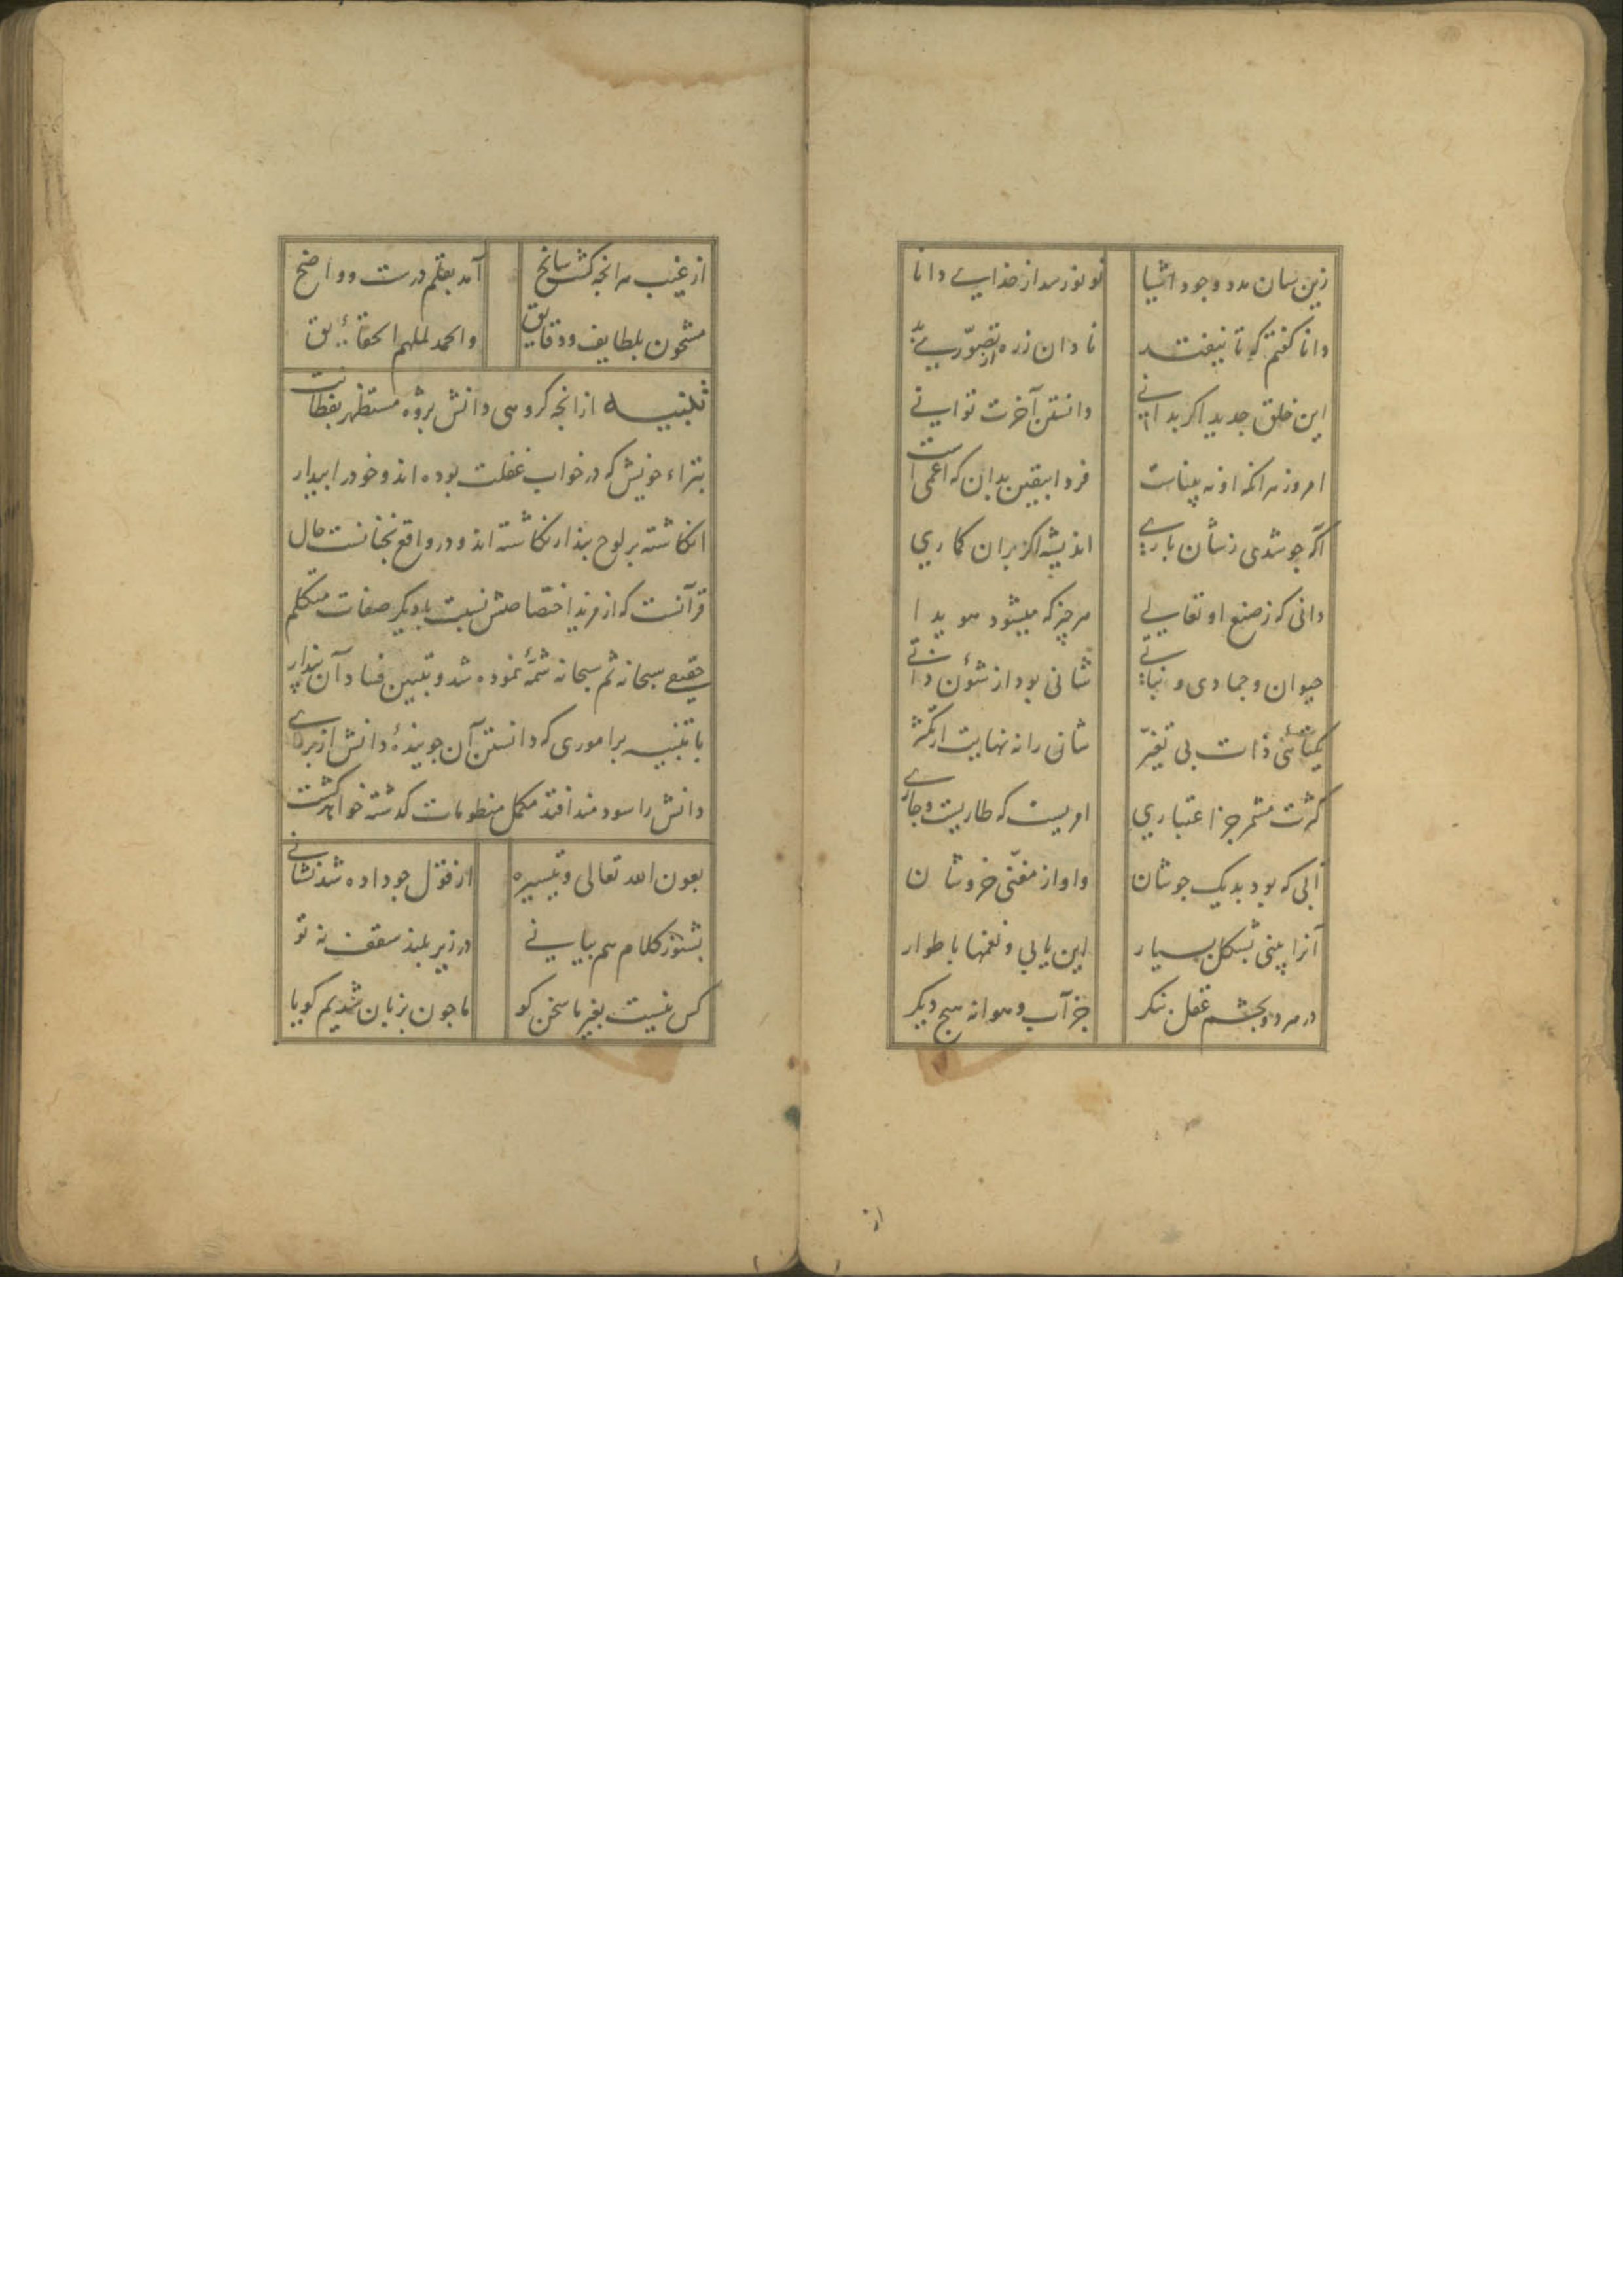 زین سان مدد وجود اشیا نو نو رسد از خدایے دانا
دانا کفتم که تا نیفتد نادان ز ره از تصوّر بد
این خلق جدید اکر بدانے دانستن آخرت توانے
امروز هرانکه او نه بیناست فردا بیقین بدان که اعمی است
اکه چو شدی ز شان بارے اندیشه اکر بران کماری
دانی که ز صنع او تعالے هر چیز که میشود هویدا
حیوان و جمادی و نباتے شانی بود از شؤن ذاتے
یکتائی ذات بی تغیّر شان را نه نهایت از تکثر
کثرت مشمر جز اعتباری امریست که طاریست و جارے
آبی که بود بدیک جوشان و اواز مغنّی خروشان
آنرا بینی بشکل بسیار این یابی و نغمها باطوار
در هر دو بچشم عقل بنکر جز آب و هوا نه هیچ دیکر
از
از غیب هرانچه کشت سانح آمد بقلم درست و واضح
مشحون بلطایف و دقایق والحمد لملهم الحقائق
تکنیسه ازانجه کروهی دانش بژوه مستظهر بفطانت
بتراء خویش که در خواب غفلت بوده اند و خود را بیدار
انکاشته بر لوح بندار نکاشته اند و در واقع نجنانست حال
قرآنست که از مزید اختصاصش نسبت با دیکر صفات متکلم
حقیقے سبحانه ثم سبحانه شمّهٔ نموده شد و تبیین فساد آن پندار
با تنبیه بر اموری که دانستن آن جویندهٔ دانش از برای
دانش را سودمند افتد مکمل منظومات کذشته خواهد کشت
بعون الله تعالی و تیسیره از قول جو داده شد نشانے
بشنو ز کلام هم بیانے در زیر بلند سقف نه تو
کس نیست بغیر ما سخن کو ما جون بزبان شدیم کویا